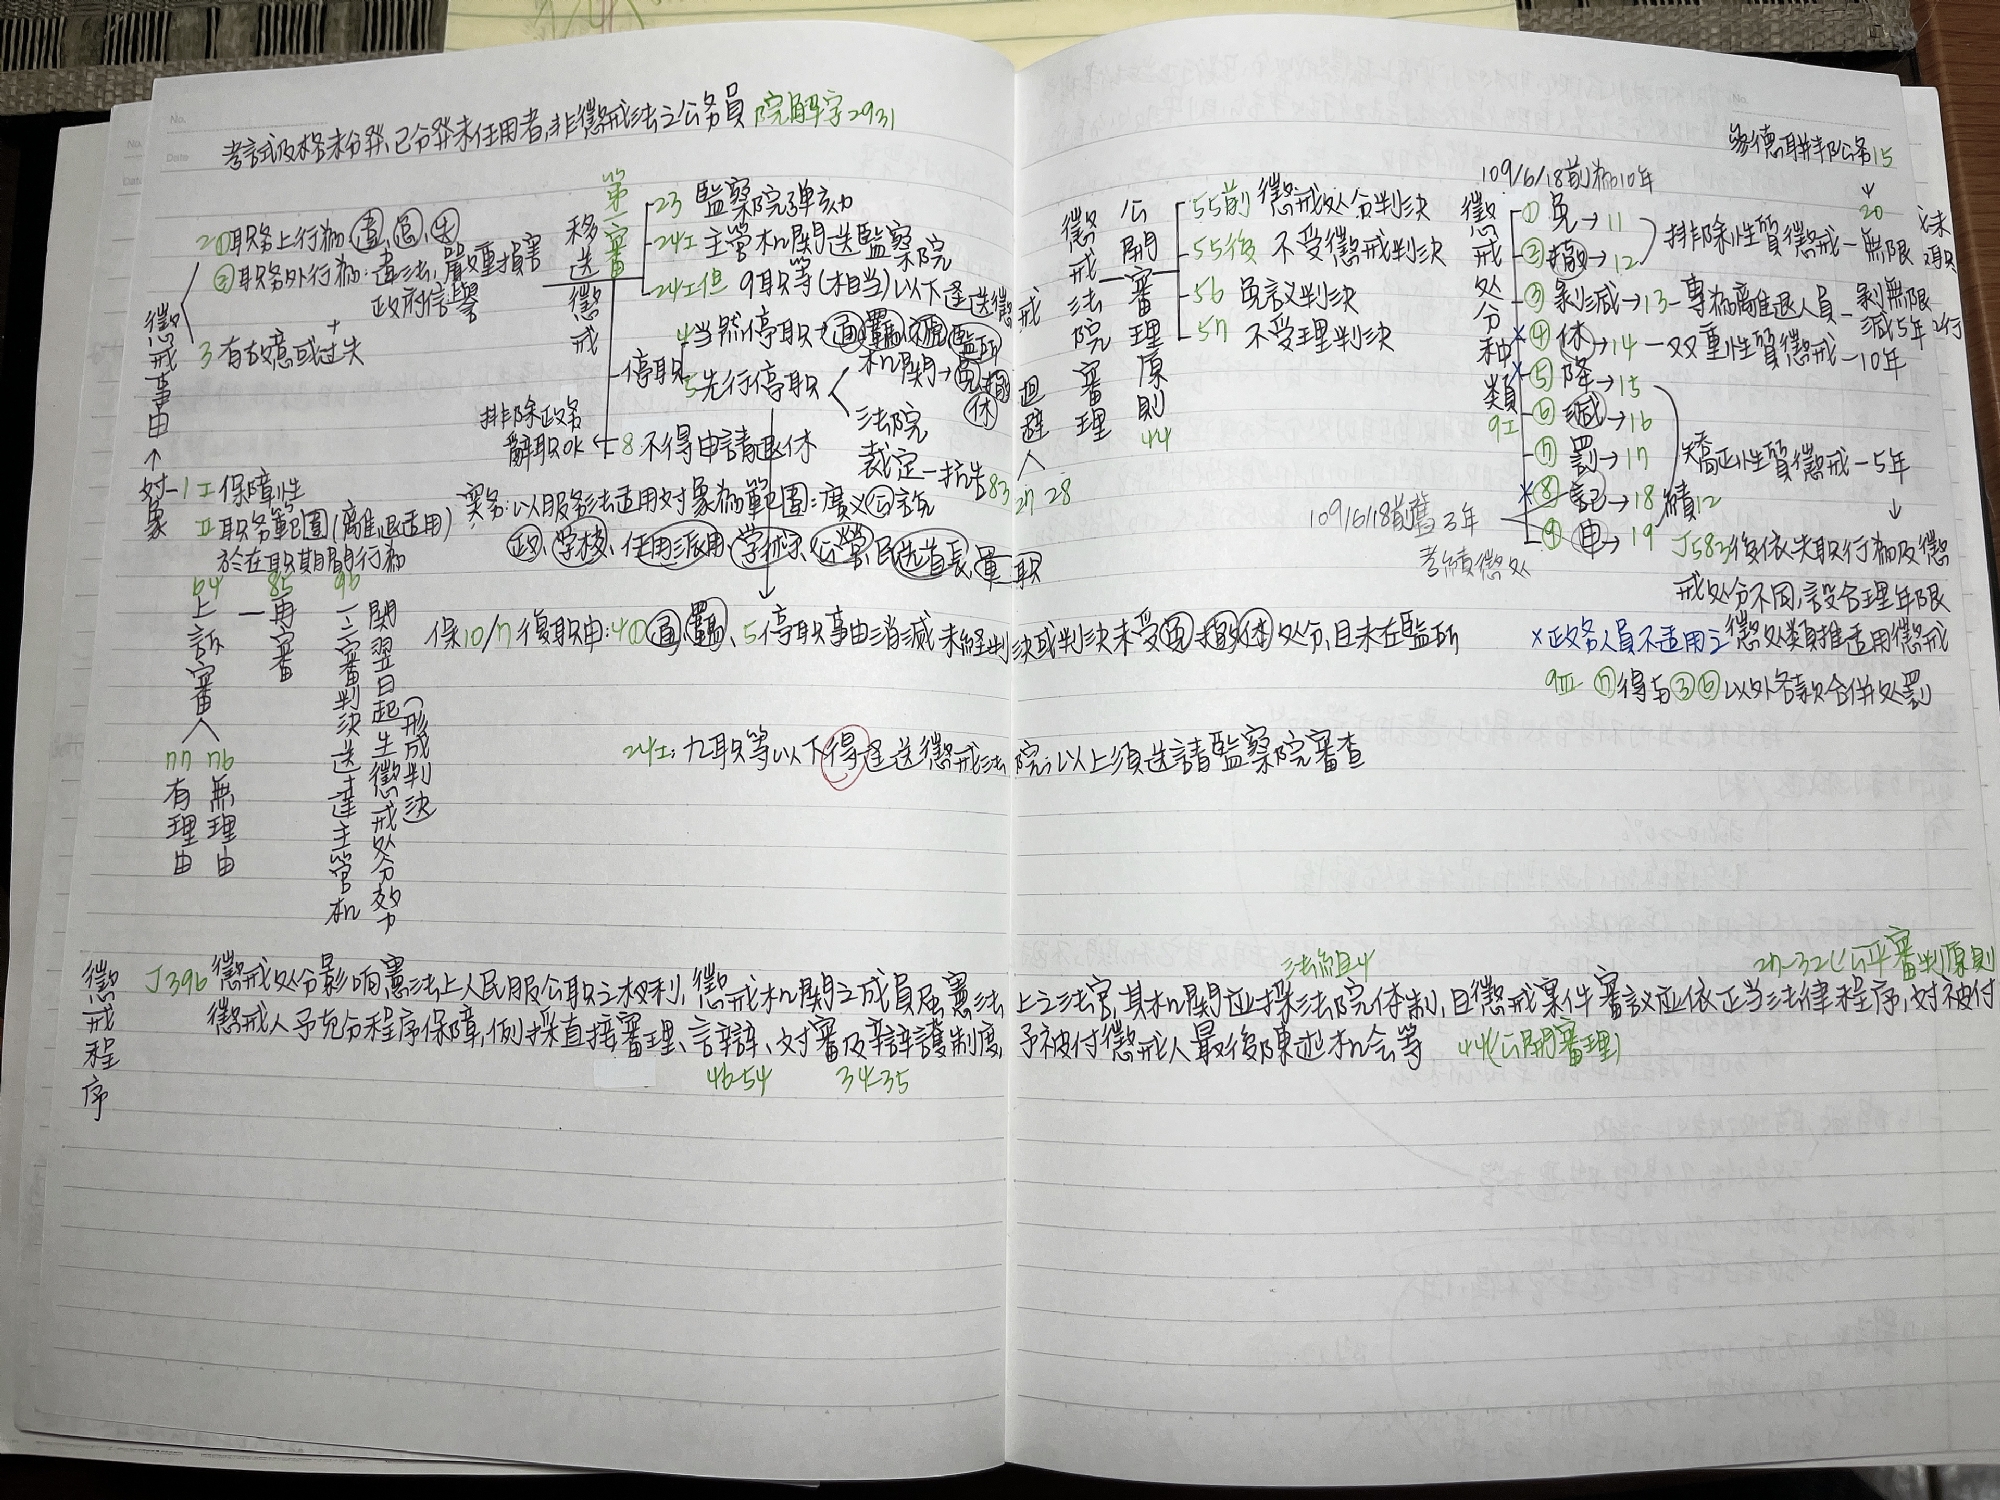 考試及格未分發、已分發未任用者,非懲戒法之公务員 院解字2931
公务15
懲戒事由
2①职务上行為 違、怠、失
②职务外行為:違法,嚴重損害
政府信譽
+
3 有故意或过失
↑
对象
1Ⅰ保障性
Ⅱ职务範圍(離退适用)
於在职期間行為
第一審
移送懲戒
23 監察院弹劾
24Ⅰ主管机関送監察院
24Ⅰ但 9职等(相当)以下逕送懲戒
停职
4当然停职→通
机関→免撤休
5先行停职
法院
裁定—抗告83
排除政务
辭职OK ← 8 不得申請退休
实务:以服务法适用对象為範圍:廣义公务
政、学校、任用派用 学术、公營、民选首長、軍职
懲戒法院審理
公開審理原則
44
迴避
27 28
55前 懲戒处分判決
55後 不受懲戒判決
56 免议判決
57 不受理判決
109/6/18前為10年
懲戒处分种類
9Ⅰ
①免→11
②撤→12
排除性質懲戒—無限
20
③剝减→13—專為離退人員—剝無限
减5年
×④休→14—双重性質懲戒—10年
×⑤降→15
⑥减→16
⑦罰→17
矯正性質懲戒—5年
×⑧記→18
⑨申→19
績12
109/6/18前舊3年
考績懲处
J583後依失职行為及懲
戒处分不同,設合理年限
64
上訴審
77
有理由
76
無理由
85
再審
96
一二審判決送達主管机
関翌日起生懲戒处分效力
(形成判決)
保10/7 復职申:4①通、羈、5停职事由消滅 未經判決或判決未受免撤休处分,且未在監所
×政务人員不适用之懲处類推适用懲戒
9Ⅲ ⑦得与③⑥以外各款合併处罰
24Ⅰ:九职等以下得逕送懲戒法院;以上須送請監察院審查
懲戒程序
法組4
27-32(公平審判原則
J396 懲戒处分影响憲法上人民服公职之权利,懲戒机関之成員屬憲法上之法官,其机関应採法院体制,且懲戒案件審議应依正当法律程序,对被付
懲戒人予充分程序保障,例採直接審理、言辯、对審及辯護制度,予被付懲戒人最後陳述机会等 44(公開審理)
46-54 34-35